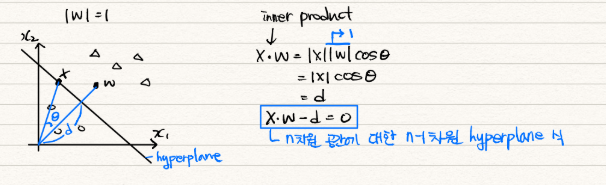 |W|=1
x₂
X
W
θ
d
x₁
hyperplane
inner product
↓ ↱1
X·W = |X||W|cosθ
= |X|cosθ
= d
X·W-d=0
ㄴ n차원 공간에 대한 n-1차원 hyperplane 식